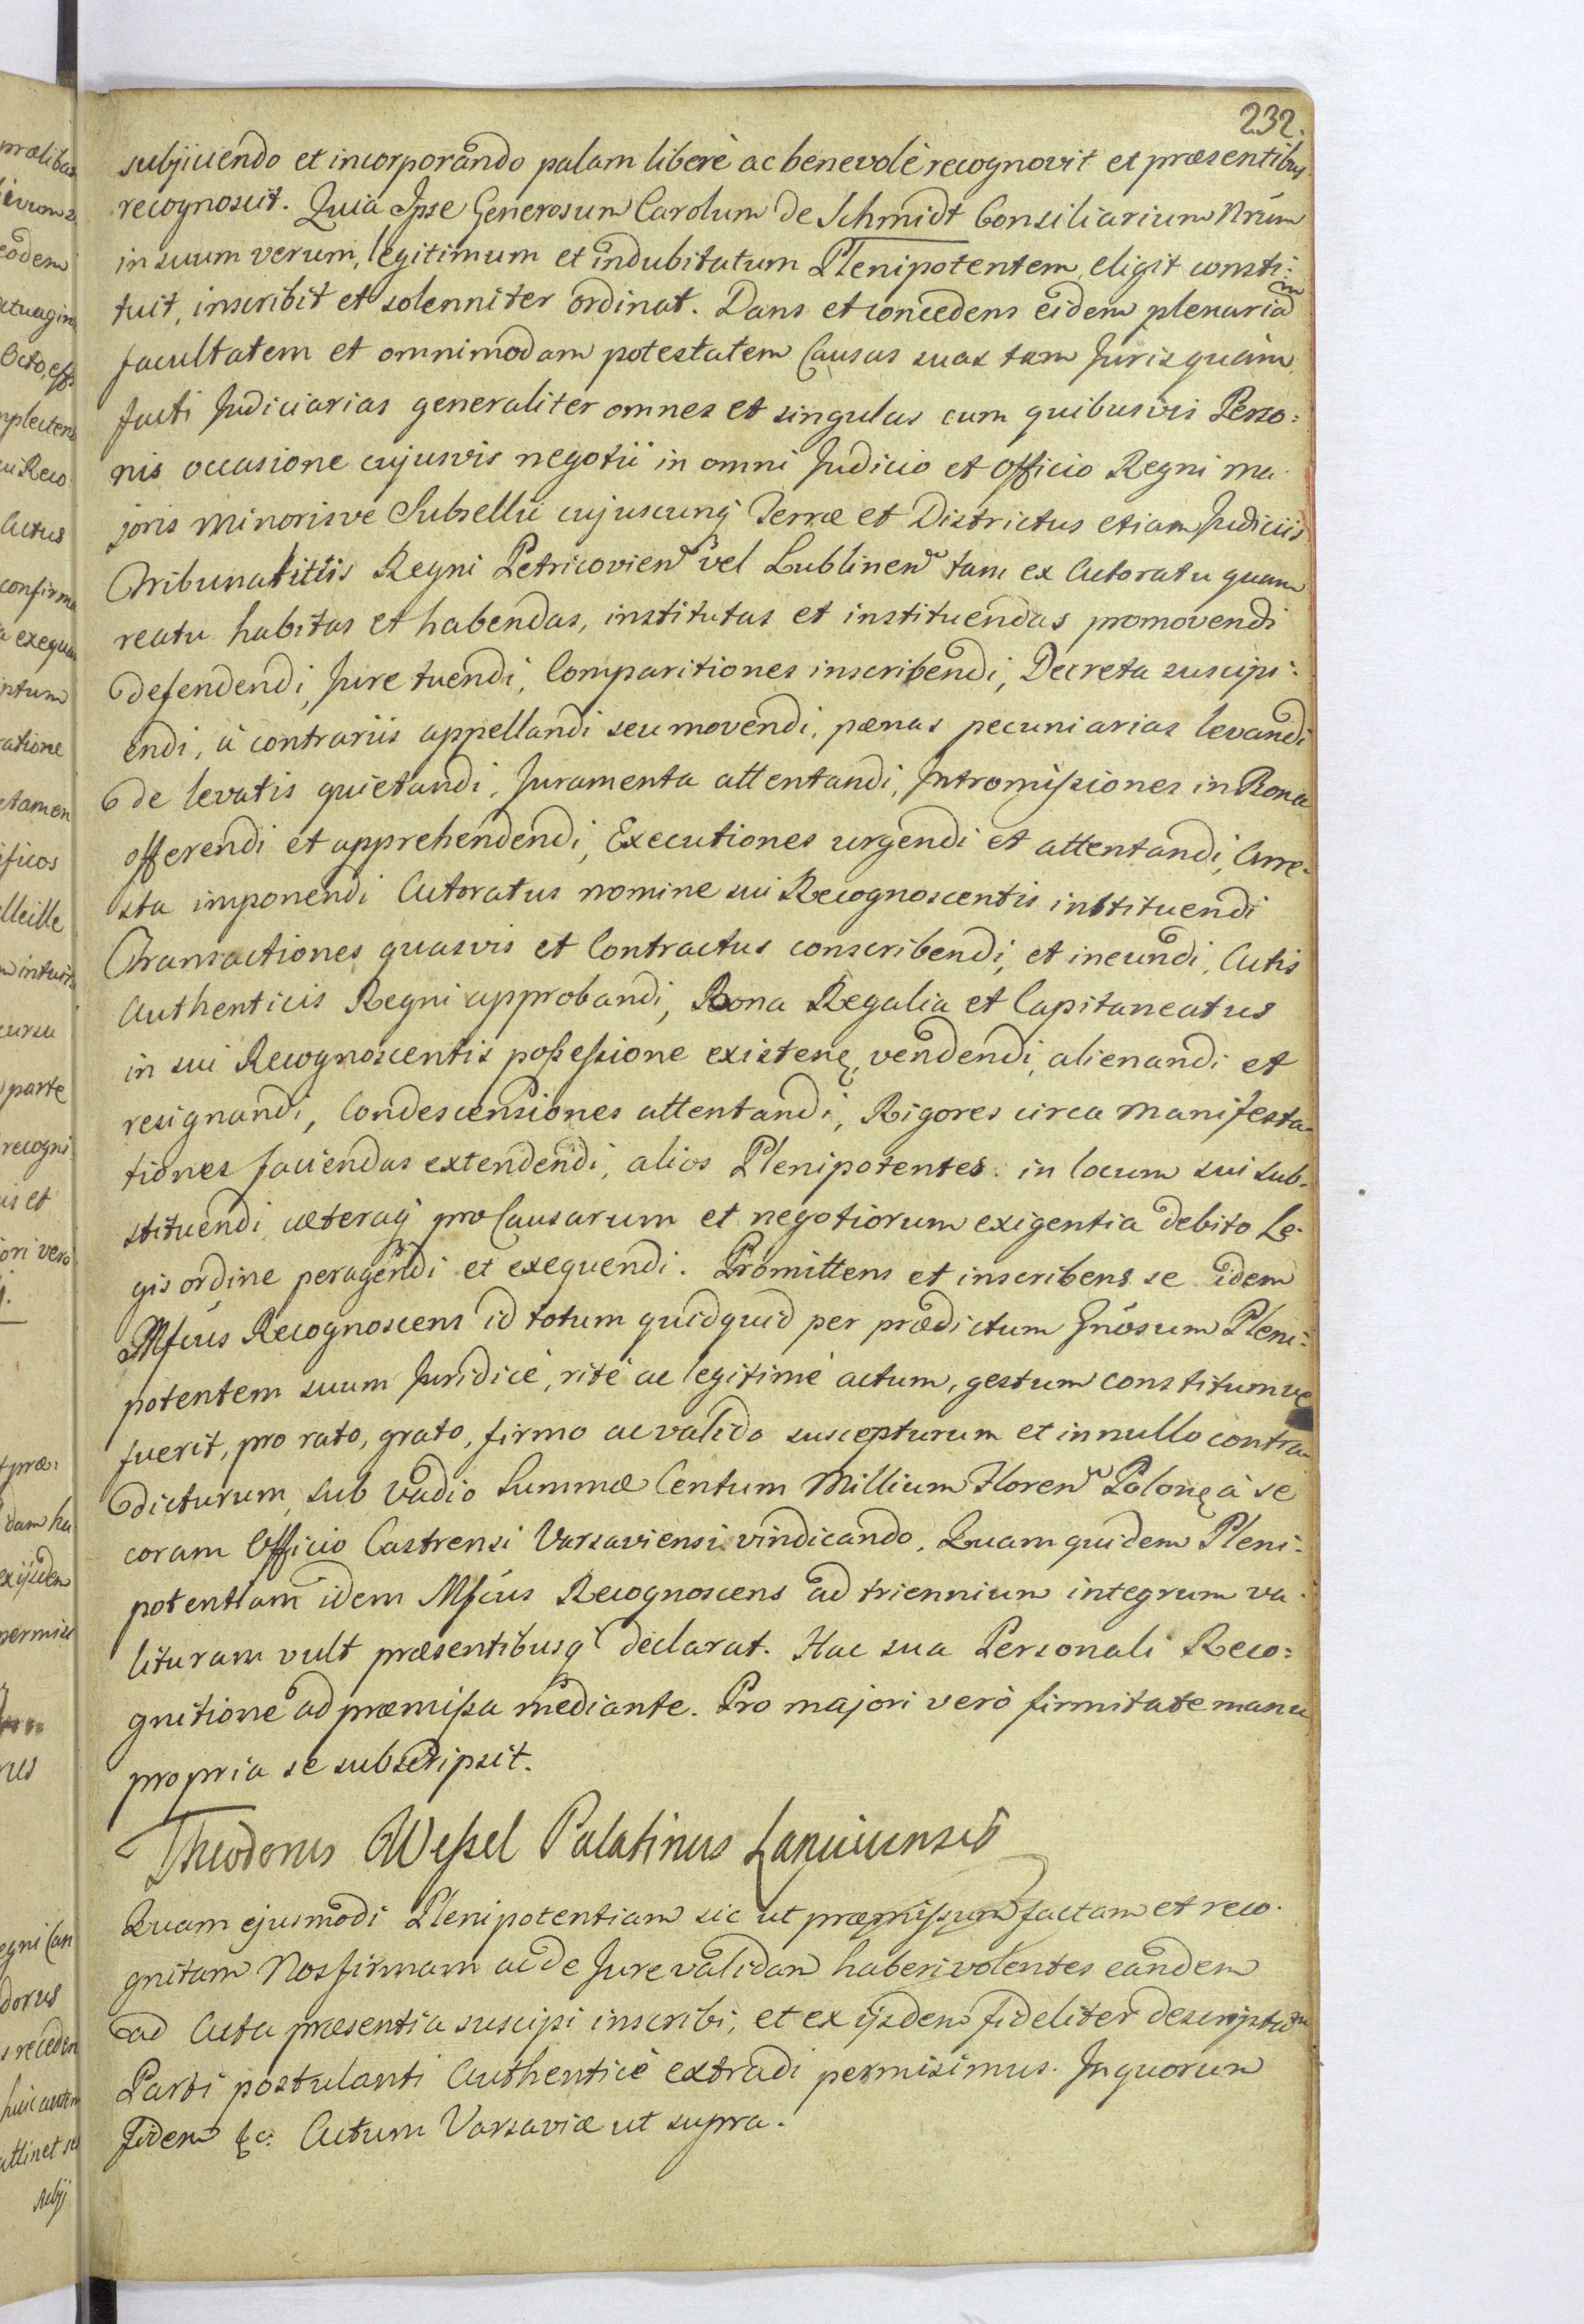 232.
subjiciendo et incorporando palam liberè ac benevolè recognovit et præsentibus
recognoscit. Quia Ipse Generosum Carolum de Schmidt Consiliarium Nrúm
in suum verum, legitimum et indubitatum Plenipotentem, eligit consti:
tuit, inscribit et solenniter ordinat. Dans et concedens eidem plenariam
facultatem et omnimodam potestatem Causas suas tam Juris quàm
facti Judiciarias generaliter omnes et singulas cum quibusvis Perso:
nis occasione cujusvis negotii in omni Judicio et Officio Regni ma
joris minorisve Subsellii cujuscunq Terræ et Districtus etiam Judiciis
Tribunalitiis Regni Petricovien vel Lublinen tam ex Actoratu quam
reatu habitas et habendas, institutas et instituendas promovendi
defendendi, Jure tuendi, Comparitiones inscribendi, Decreta suscipi:
endi, à contrariis appellandi seu movendi, pænas pecuniarias levandi
de levatis quietandi, Juramenta attentandi, Intromissiones in Bona
offerendi et apprehendendi, Executiones urgendi et attentandi, Arre-
sta imponendi Actoratus nomine sui Recognoscentis instituendi
Transactiones quasvis et Contractus conscribendi, et ineundi, Actis
Authenticis Regni approbandi, Bona Regalia et Capitaneatus
in sui Recognoscentis possessione existen, vendendi, alienandi et
resignandi, Condescensiones attentandi, Rigores circa manifesta-
tiones faciendas extendendi, alios Plenipotentes in locum sui sub-
stituendi, cæteraq pro Causarum et negotiorum exigentia debito Le-
gis ordine peragendi et exequendi. Promittens et inscribens se idem
Mfcus Recognoscens id totum quidquid per prædictum Gnosum Pleni:
potentem suum Juridicè, ritè ac legitimè actum, gestum constitumve
fuerit, pro rato, grato, firmo ac valido suscepturum et in nullo contra
dicturum, sub vadio Summæ Centum Millium Floren Polon à se
coram Officio Castrensi Varsaviensi vindicando. Quam quidem Pleni-
potentiam idem Mfcus Recognoscens ad triennium integrum va-
lituram vult præsentibusq declarat. Hac sua Personali Reco:
gnitione ad præmissa mediante. Pro majori verò firmitate manu
propria se subscripsit.
Theodorus Wessel Palatinus Lanciciensis
Quam ejusmodi Plenipotentiam sic ut præmissum factam et reco-
gnitam Nos firmam ac de Jure validam haberi volentes eandem
ad Acta præsentia suscipi inscribi, et ex ijsdem fideliter descriptam
Parti postulanti Authenticè extradi permisimus. In quorum
Fidem &c. Actum Varsaviæ ut supra.